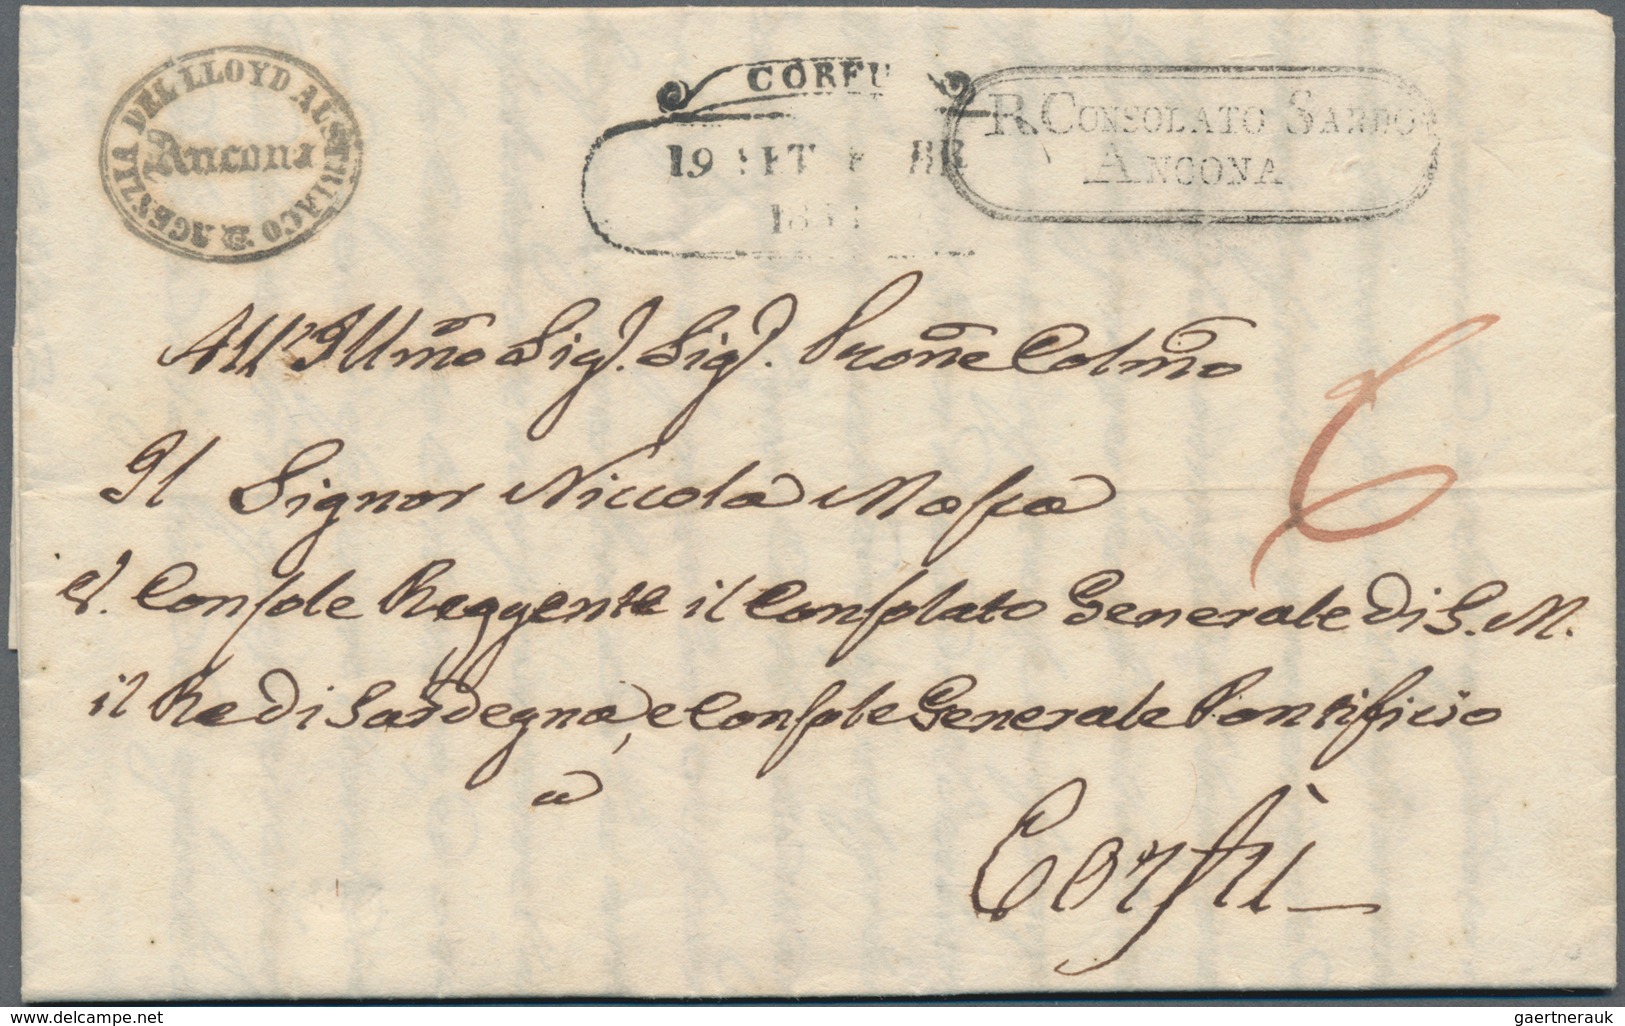 AGENZIA DEL LLOYD AUSTRIACO
Ancona
CORFU
19 SETTEMBR
R. CONSOLATO SARDO
ANCONA
All'Illmo Sigr. Sigr. Prone Colmo
6
Il Signor Niccola Mossa
V. Console Reggente il Consolato Generale di S. M.
il Re di Sardegna, e Console Generale Pontificio
a
Corfù
www.delcampe.net
gaertnerauk